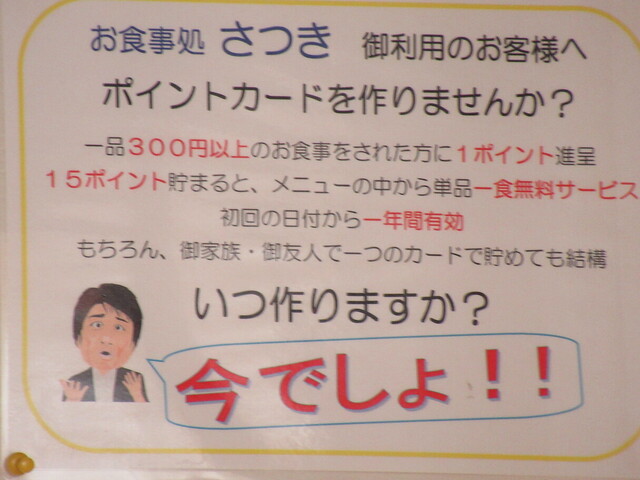 お食事処 さつき 御利用のお客様へ
ポイントカードを作りませんか？
一品３００円以上のお食事をされた方に１ポイント進呈
１５ポイント貯まると、メニューの中から単品一食無料サービス
初回の日付から一年間有効
もちろん、御家族・御友人で一つのカードで貯めても結構
いつ作りますか？
今でしょ！！